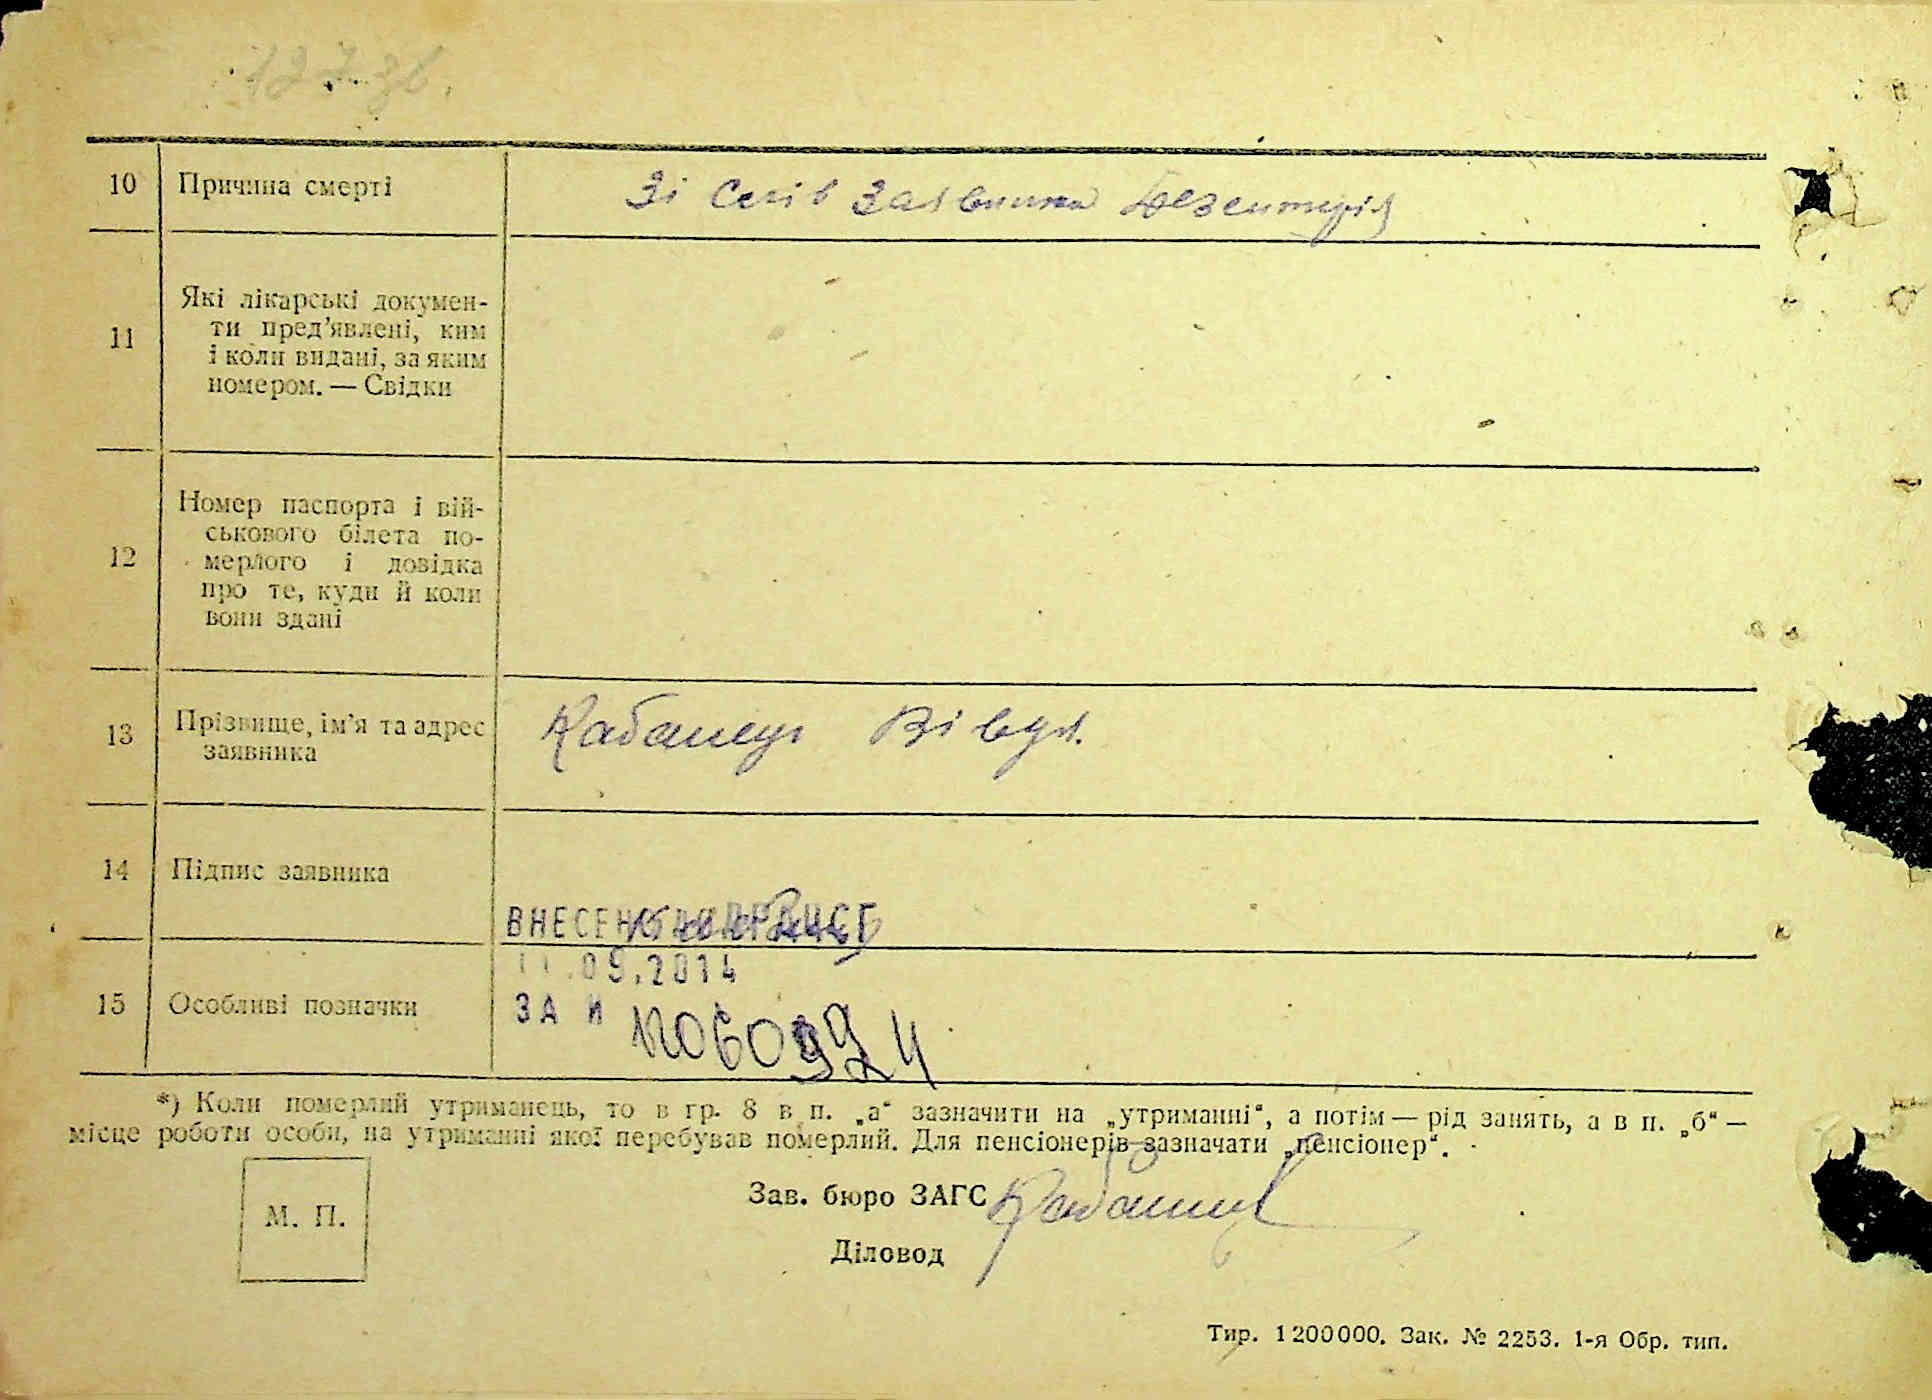 127 зв.
10 Причина смерті Зі слів заявника дезентерія
11 Які лікарські докумен-
ти пред’явлені, ким
і коли видані, за яким
номером. — Свідки
12 Номер паспорта і вій-
ськового білета по-
мерлого і довідка
про те, куди й коли
вони здані
13 Прізвище, ім’я та адрес
заявника
14 Підпис заявника
11.09.2014
15 Особливі позначки
ЗА №
*) Коли померлий утриманець, то в гр. 8 в п. „а“ зазначити на „утриманні“, а потім — рід занять, а в п. „б“ —
місце роботи особи, на утриманні якої перебував померлий. Для пенсіонерів зазначати „пенсіонер“.
М. П.
Зав. бюро ЗАГС
Діловод
Тир. 1200000. Зак. № 2253. 1-я Обр. тип.